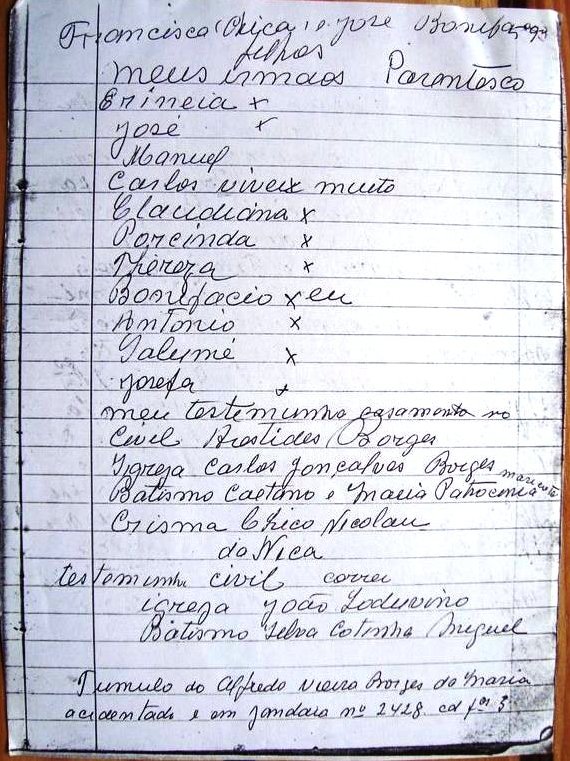 Francisca (Chica) e José Bonifa
filhos
meus irmãos Parentesco
Erineia x
José x
Manuel
Carlos vivex muito
Claudiana x
Porcinda x
Thereza x
Bonifacio x eu
Antonio x
Salumé x
Josefa x
meu testemunho casamento no
Civil Arostides Borges
Igreja Carlos Gonçalves Borges
Batismo Caetano e Maria Patrocinia
Crisma Chico Nicolau
da Nica
testemunha civil correi
igreja João Loduvino
Batismo Selva Cotinha Miguel
Tumulo do Alfredo Vieira Borges da Maria
acidentado e em Jandaia nº 2428